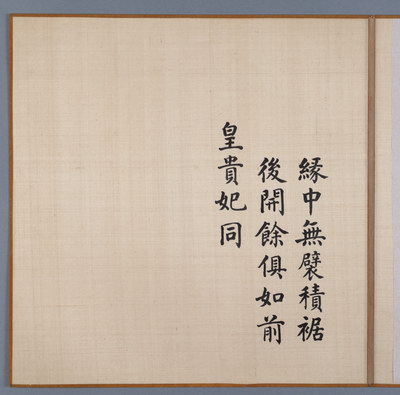 緣中無襞積裾
後開餘俱如前
皇貴妃同